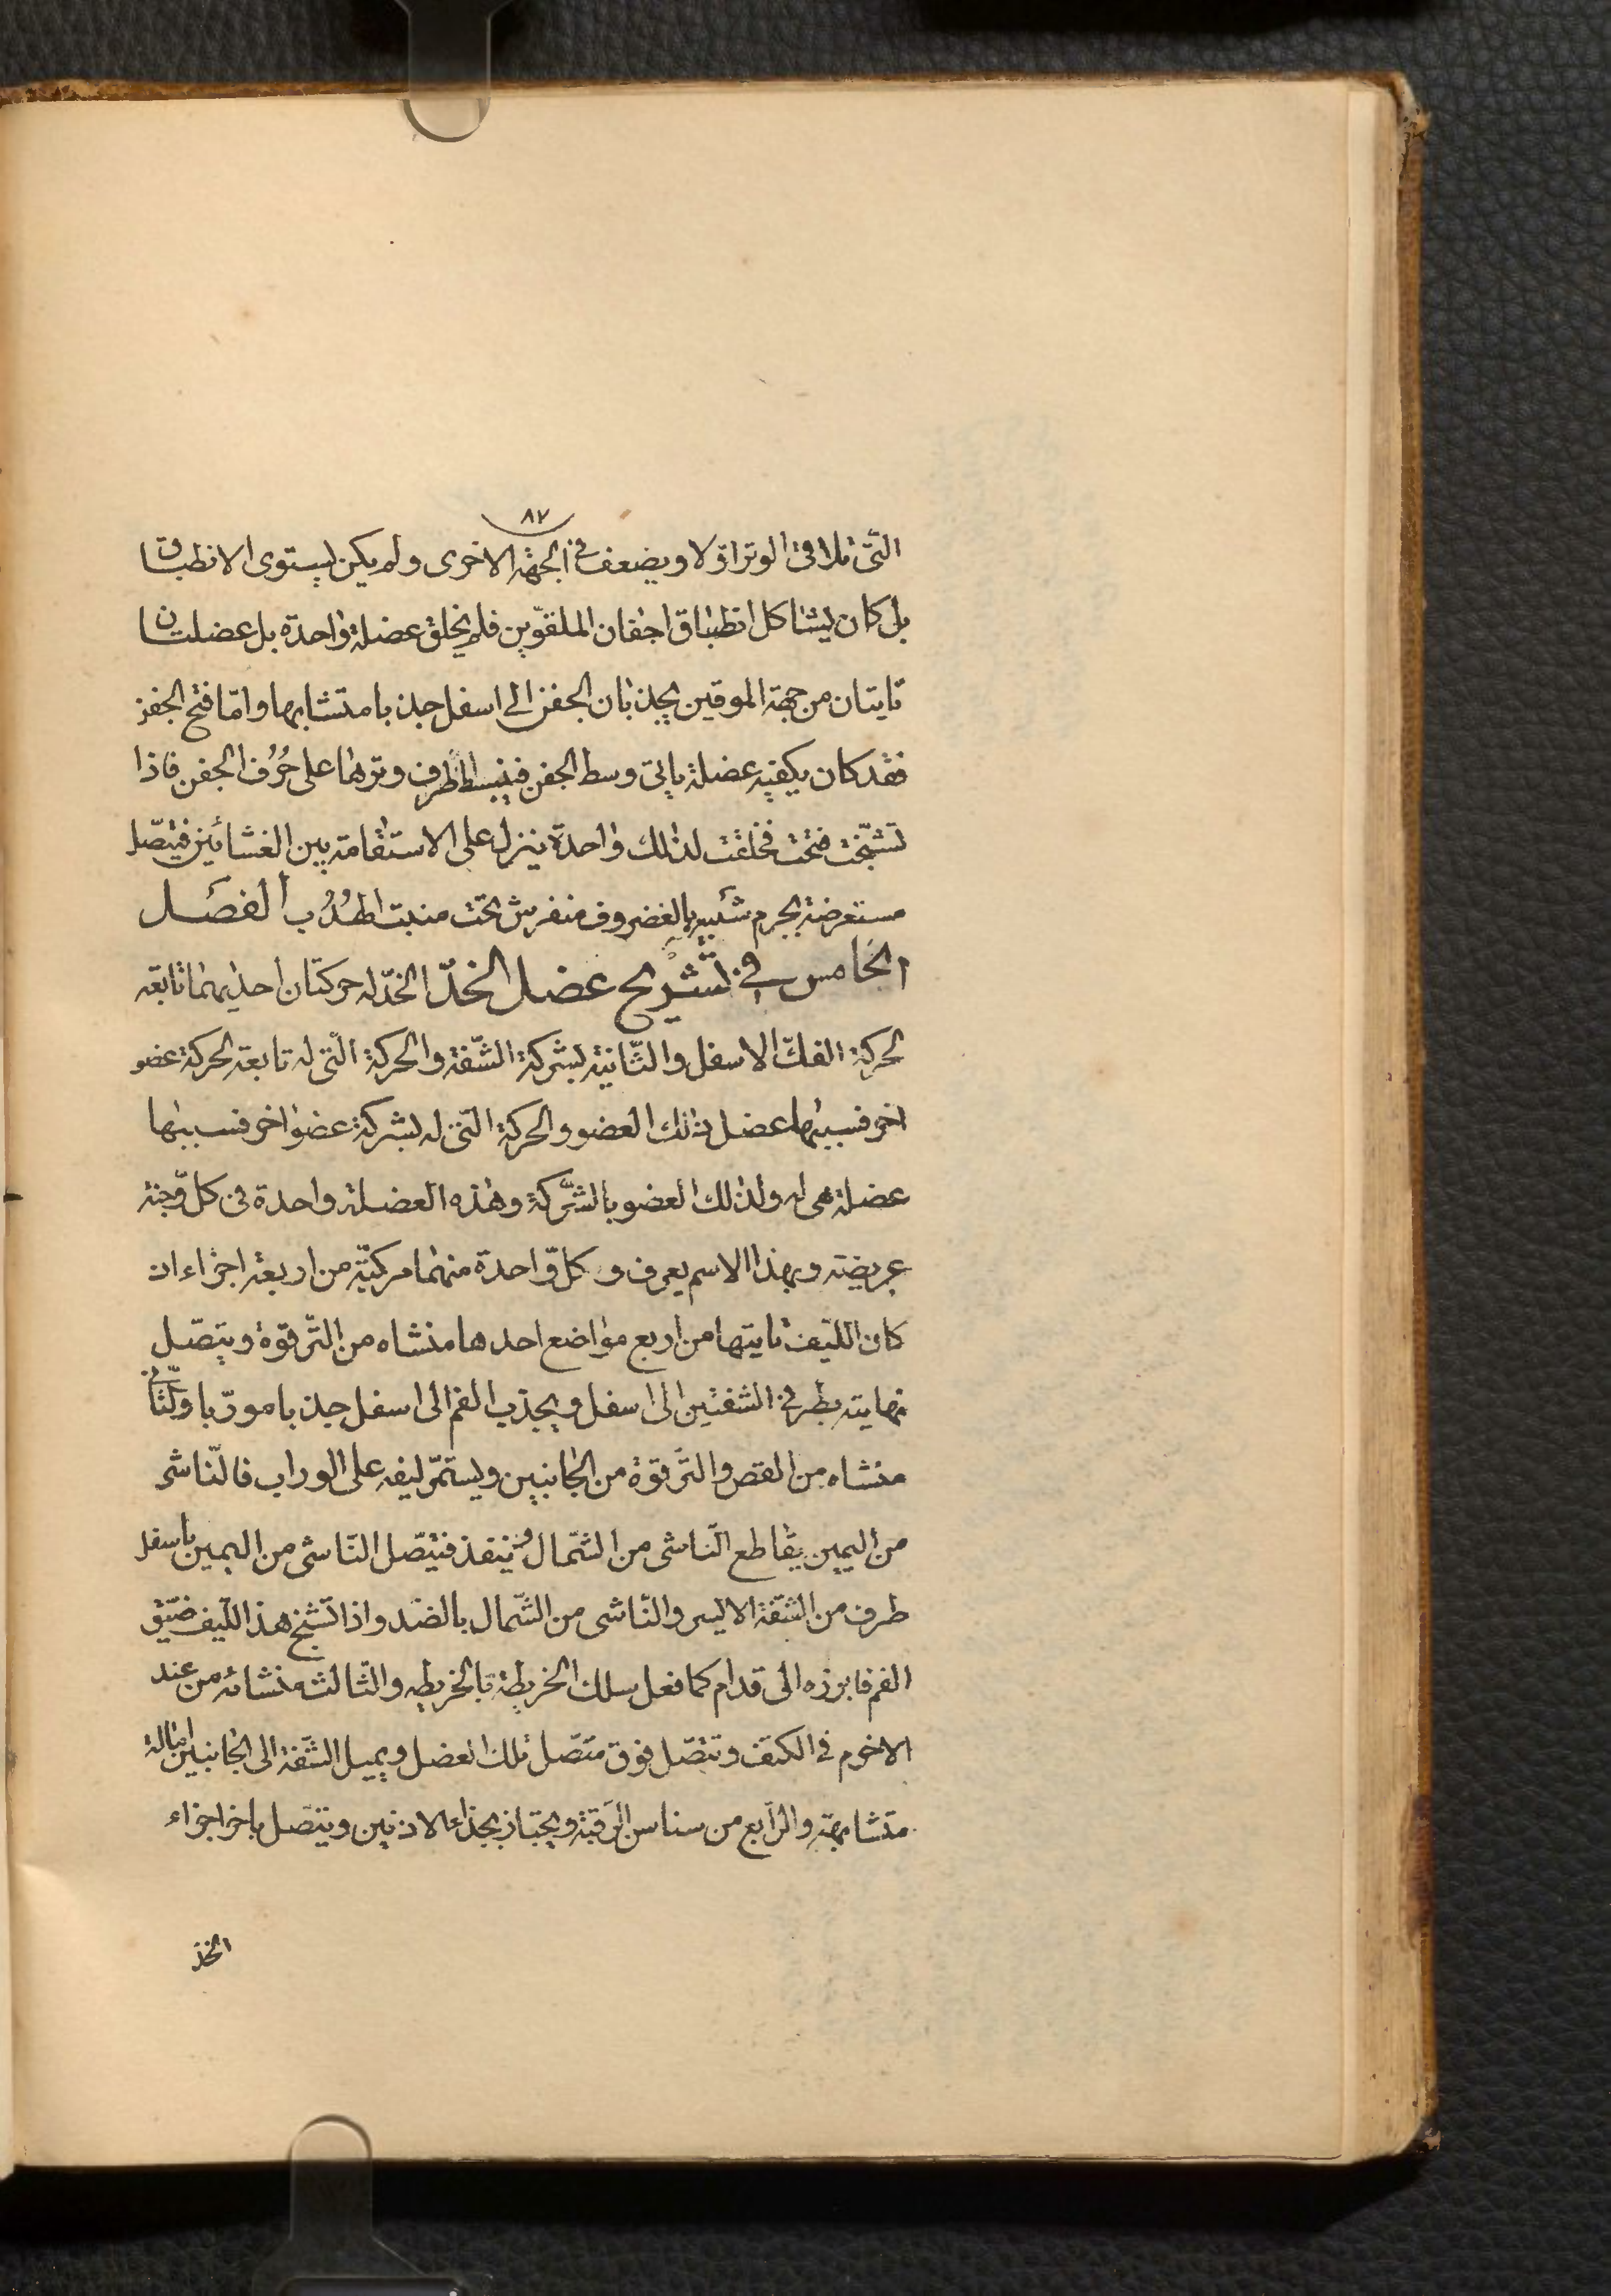 ٨٧
الّتى تلاقى الوتر اوّلا ويضعف فى الجهة الاخرى ولم يكن ليستوى الانطباق
بل كان ليشاكل انطباق اجفان الملقوّين فلم يخلق عضلة واحدة بل عضلتان
تايتان من جهة الموقين يجذبان الجفن الى اسفل جذبا متشابها وامّا فتح الجفن
فقد كان يكفيه عضلة ياتى وسط الجفن فينبسط طرف وترها على حُرُف الجفن فاذا
تشنّجت فتحت فخلقت لذلك واحدة ينزل على الاستقامة بين الغشائين فيتّصل
مستعرضة بجرم شبيه بالغضروف منفرش تحت منبت الهُدُب الفصل
الخامس فى تشريح عضل الخدّ الخدّ له حركتان احديهما تابعة
لحركة الفكّ الاسفل والثّانية بشركة الشّفة والحركة الّتى له تابعة لحركة عضو
اخر فسببها عضل ذلك العضو والحركة الّتى له بشركة عضو اخر فسببها
عضلة هى له ولذلك العضو بالشّركة وهذه العضلة واحدة فى كل وّجنة
عريضة وبهذا الاسم يعرف و كلّ واحدة منهما مركبّة من اربعة اجزاء ان
كان اللّيف تايتها من اربع مواضع احدها منشاه من التّرقوة ويتصّل
نهايته بطرفى الشفتين الى اسفل ويجذب الفم الى اسفل جذبا مورّبا والثّانى
منشاه من القص والتّرقوة من الجانبين ويستمّر ليفه على الوراب فالنّاشى
من اليمين يقاطع النّاشى من الشّمال وينفذ فيتّصل النّاشى من اليمين باسفل
طرف من الشّفة الايسر والنّاشى من الشّمال بالضّد واذا تشنج هذا اللّيف ضيّق
الفم فابرزه الى قدام كما فعل سلك الخريطة بالخريطه والثّالثه منشائه من عند
الاخرم فى الكتف وتتصّل فوق متصّل تلك العضل ويميل الشّفة الى الجانبين امالة
متشابهة والرّابع من سناسن الرّقبة ويجتاز بحذاء الاذنين ويتصّل باخر اجزاء
الخد